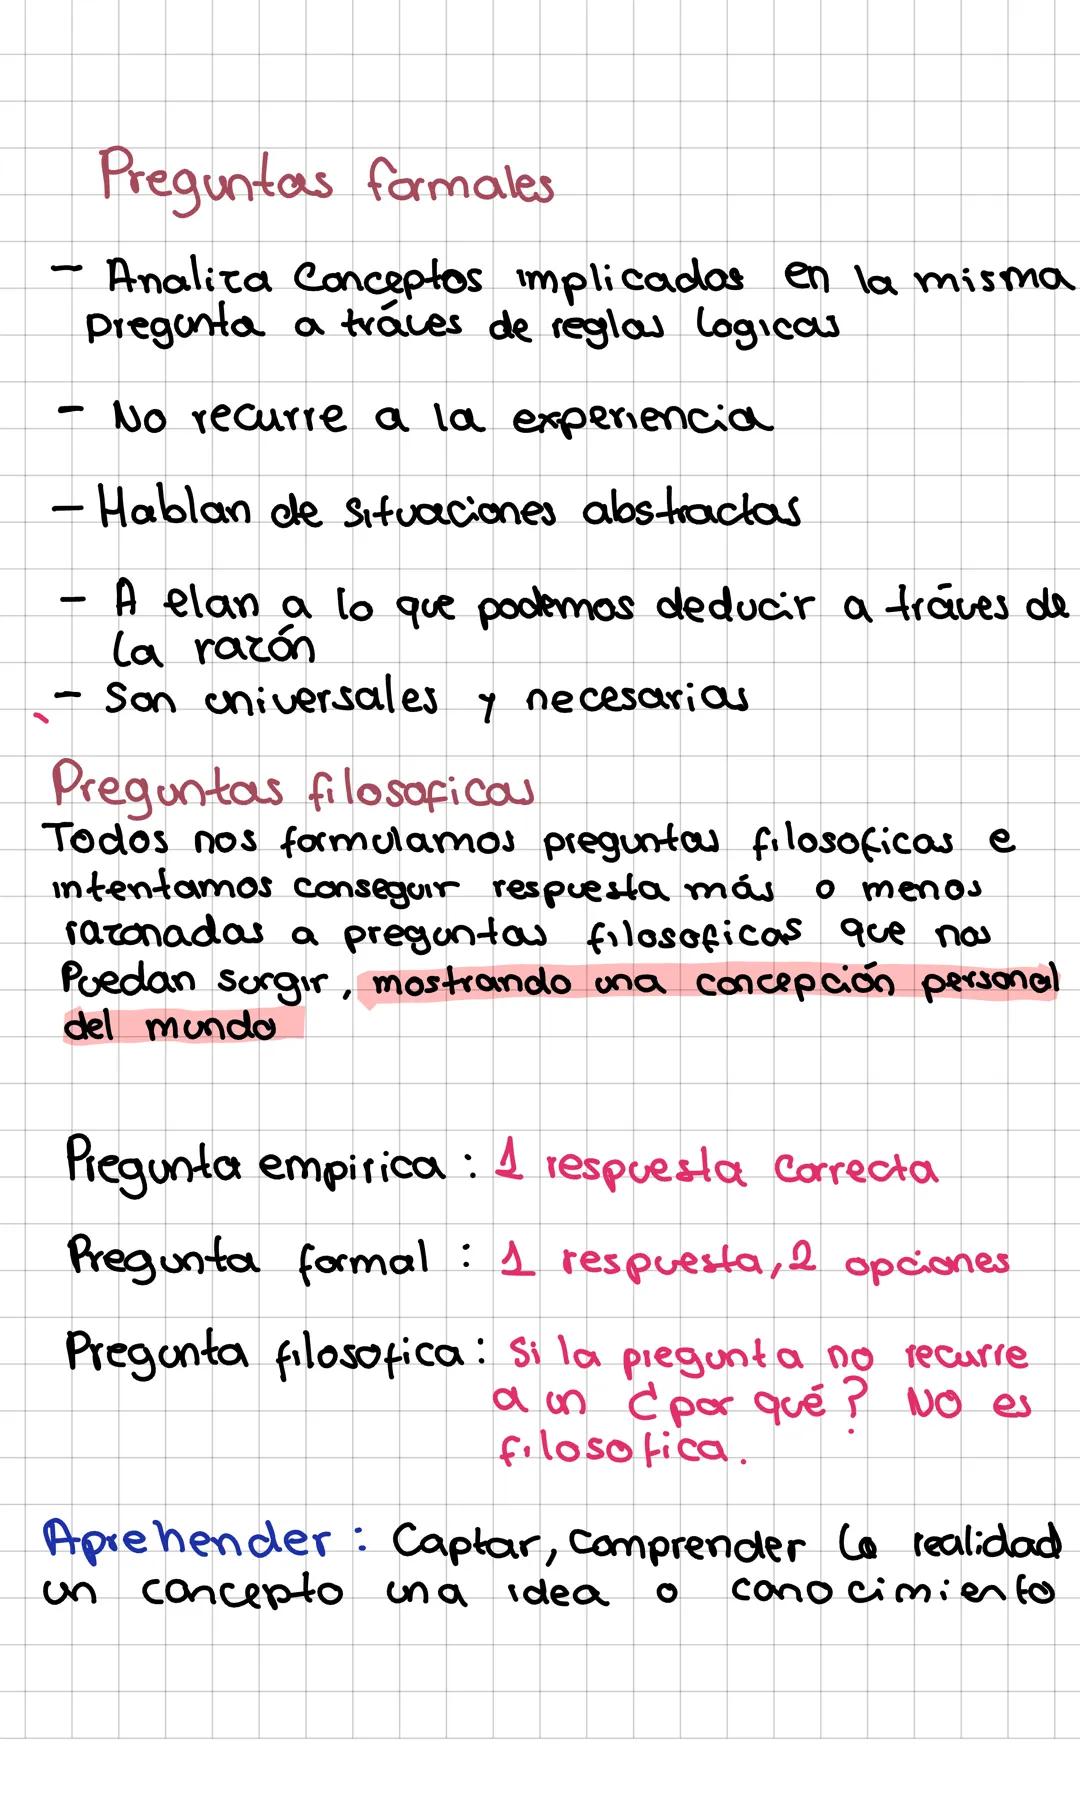 Preguntas formales
- Analiza Conceptos implicados en la misma
pregunta a tráves de reglas logicas
- No recurre a la experiencia
- Hablan de situaciones abstractas
- A elan a lo que podemos deducir a tráves de
la razón
- Son universales y necesarias
Preguntas filosoficas
Todos nos formulamos preguntas filosoficas e
intentamos conseguir respuesta más o menos
razonadas a preguntas filosoficas que nos
Puedan surgir, mostrando una concepción personal
del mundo
Pregunta empirica : 1 respuesta correcta
Pregunta formal : 1 respuesta, 2 opciones
Pregunta filosofica : Si la pregunta no recurre
a un ¿por qué? NO es
filosofica.
Aprehender : Captar, comprender la realidad
un concepto una idea o conocimiento